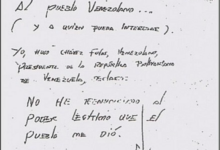 Al pueblo Venezolano...
(y a quien pueda interesar).
Yo, Hugo Chávez Frías, Venezolano,
Presidente de la República Bolivariana
de Venezuela, declaro:
No he renunciado al
poder legítimo que el
pueblo me dió.